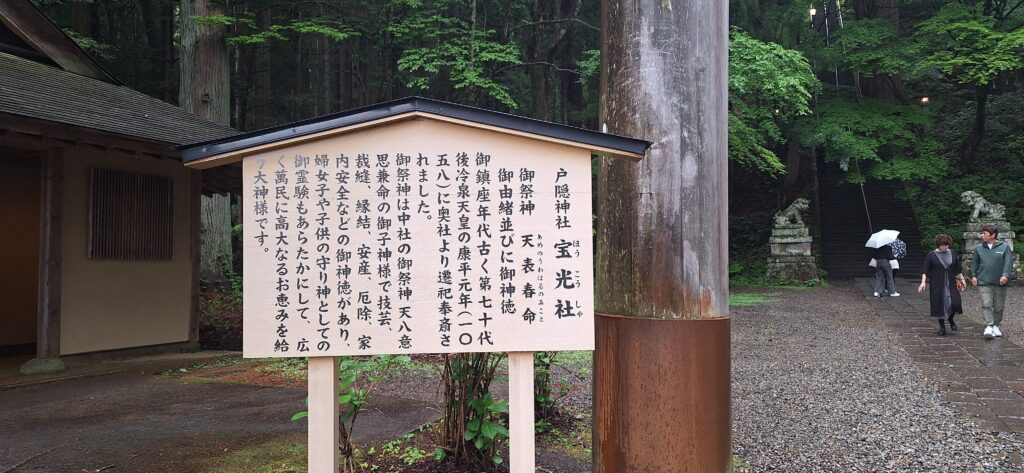 戸隠神社 宝光社
ほうこうしや
御祭神 天表春命
あめのうわはるのみこと
御由緒並びに御神徳
御鎮座年代古く第七十代
後冷泉天皇の康平元年(一〇
五八)に奥社より遷祀奉斎さ
れました。
御祭神は中社の御祭神天八意
思兼命の御子神様で技芸、
裁縫、縁結、安産、厄除、家
内安全などの御神徳があり、
婦女子や子供の守り神としての
御霊験もあらたかにして、広
く萬民に高大なるお恵みを給
う大神様です。